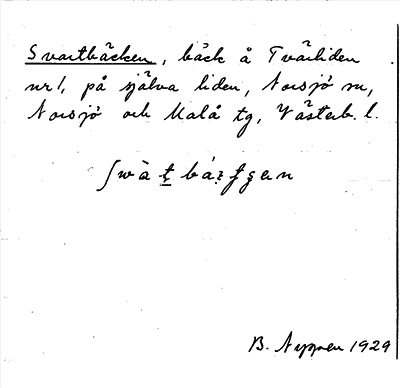 Svartbäcken, bäck å Tvärliden
nr 1, på själva liden, Norsjö sn,
Norsjö och Malå tg, Västerb. l.
B. Nyman 1929